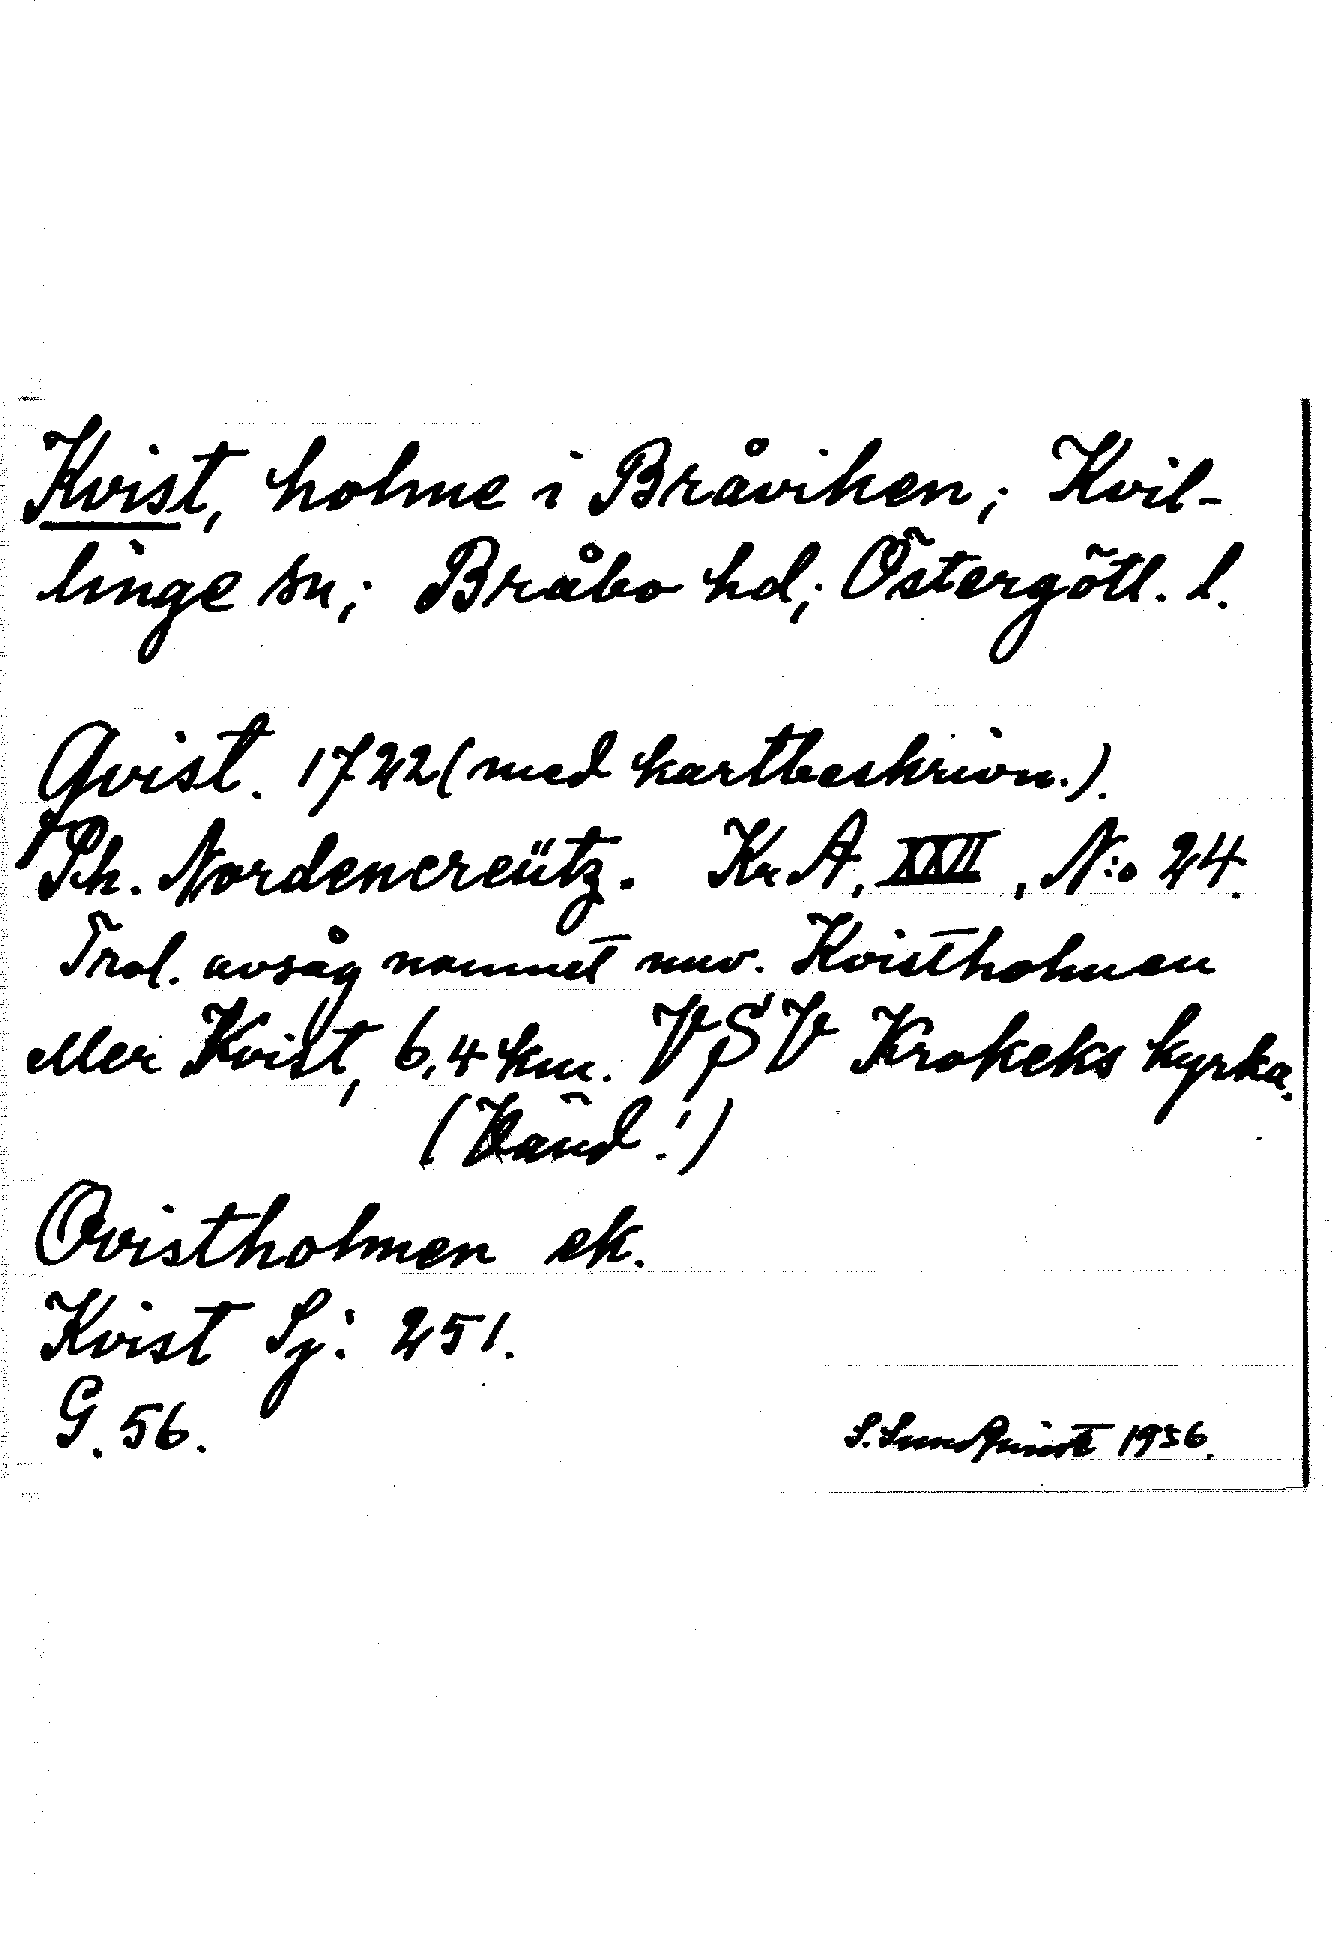 Kvist, holme i Bråviken; Kvil-
linge sn; Bråbo hd; Östergötl. l.
Qvist. 1722 (med kartbeskrivn.).
Ph. Nordencreütz. KrA, XXII, N:o 24.
Trol. avsåg namnet nuv. Kvistholmen
eller Kvist, 6,4 km. VSV Krokeks kyrka.
(Vänd!)
Qvistholmen ek.
Kvist Sj: 251.
G. 56.
S. Sundquist 1956.